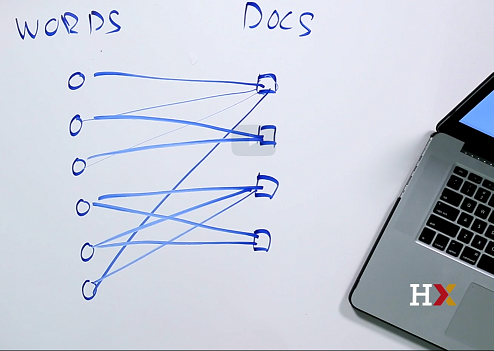 WORDS DOCS
HX